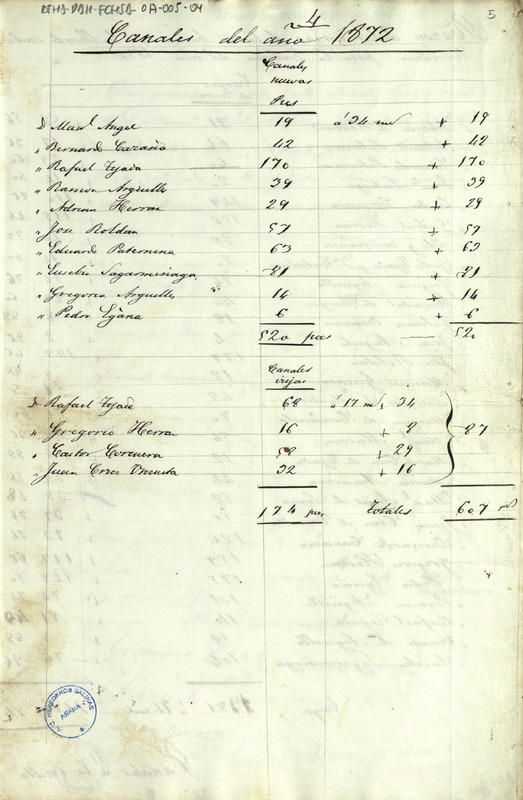 ATHA-DAH-FCHSA-0A-005-04
4
5
Canales del año 1872
Canales
nuevas
Pies
D Man.l Angel 19 á 34 mrs + 19
" Bernardo 42 + 42
" Rafael Tejada 170 + 170
" Ramon Arguelles 39 + 39
" Adrian Herran 29 + 29
" Jose Roldan 57 + 57
" Eduardo Paternina 63 + 63
" Eusebio Sagarminaga 81 + 81
" Gregorea Arguelles " 14 + 14
" Pedro Egaña 6 + 6
520 pies — 520
Canales
viejas
D Rafael Tejada 68 á 17 m/s 34
" Gregorio Herran 16 + 8 87
" Castor Corcuera 58 + 29
" Juan Cruz 32 + 16
174 pies Totales 607
HEREDEROS SALINAS
AÑANA